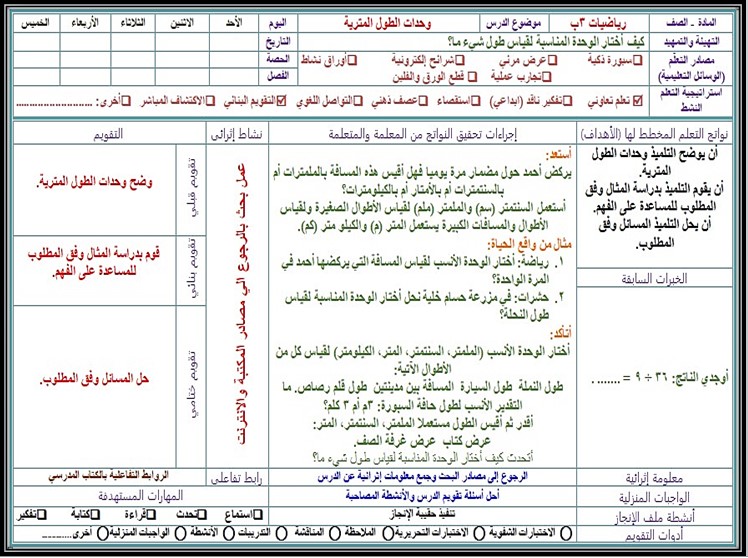 المادة - الصف رياضيات ٣ب موضوع الدرس وحدات الطول المترية اليوم الأحد الاثنين الثلاثاء الأربعاء الخميس
التهيئة والتمهيد كيف أختار الوحدة المناسبة لقياس طول شيء ما؟ التاريخ
مصادر التعلم (الوسائل التعليمية) ❏سبورة ذكية ❏عرض مرئي ❏شرائح إلكترونية ❏أوراق نشاط الحصة
❏تجارب عملية ❏ قطع الورق والفلين الفصل
استراتيجية التعلم النشط ☑تعلم تعاوني ❏تفكير ناقد (ابداعي) ❏استقصاء ❏عصف ذهني ❏التواصل اللغوي ☑التقويم البنائي ❏الاكتشاف المباشر ❏أخرى: ............................
نواتج التعلم المخطط لها (الأهداف) إجراءات تحقيق النواتج من المعلمة والمتعلمة نشاط إثرائي التقويم
أن يوضح التلميذ وحدات الطول
المترية.
أن يقوم التلميذ بدراسة المثال وفق
المطلوب للمساعدة على الفهم.
أن يحل التلميذ المسائل وفق
المطلوب.
الخبرات السابقة
أوجدي الناتج: ٣٦ ÷ ٩ = ....... .
أستعد:
يركض أحمد حول مضمار مرة يوميا فهل أقيس هذه المسافة بالملمترات أم
بالسنتمترات أم بالأمتار أم بالكيلومترات؟
أستعمل السنتمتر (سم) والملمتر (ملم) لقياس الأطوال الصغيرة ولقياس
الأطوال والمسافات الكبيرة يستعمل المتر (م) والكيلو متر (كم).
مثال من واقع الحياة:
١. رياضة: أختار الوحدة الأنسب لقياس المسافة التي يركضها أحمد في
المرة الواحدة؟
٢. حشرات: في مزرعة حسام خلية نحل أختار الوحدة المناسبة لقياس
طول النحلة؟
أتأكد:
أختار الوحدة الأنسب (الملمتر، السنتمتر، المتر، الكيلومتر) لقياس كل من
الأطوال الآتية:
طول النملة طول السيارة المسافة بين مدينتين طول قلم رصاص. ما
التقدير الأنسب لطول حافة السبورة: ٣م أم ٣ كلم؟
أقدر ثم أقيس الطول مستعملا الملمتر، السنتمتر، المتر:
عرض كتاب عرض غرفة الصف.
أتحدث كيف أختار الوحدة المناسبة لقياس طول شيء ما؟
عمل بحث بالرجوع الي مصادر المكتبة والانترنت
تقويم قبلي
وضح وحدات الطول المترية.
تقويم بنائي
قوم بدراسة المثال وفق المطلوب
للمساعدة على الفهم.
تقويم ختامي
حل المسائل وفق المطلوب.
معلومة إثرائية الرجوع إلى مصادر البحث وجمع معلومات إثرائية عن الدرس رابط تفاعلي الروابط التفاعلية بالكتاب المدرسي
الواجبات المنزلية أحل أسئلة تقويم الدرس والأنشطة المصاحبة المهارات المستهدفة
أنشطة ملف الإنجاز تنفيذ حقيبة الإنجاز ❏استماع ❏تحدث ❏قراءة ❏كتابة ❏تفكير
أدوات التقويم ○ الاختبارات الشفوية ○ الاختبارات التحريرية ○ الملاحظة ○ المناقشة ○ التدريبات ○ الأنشطة ○ الواجبات المنزلية ○ أخرى...........